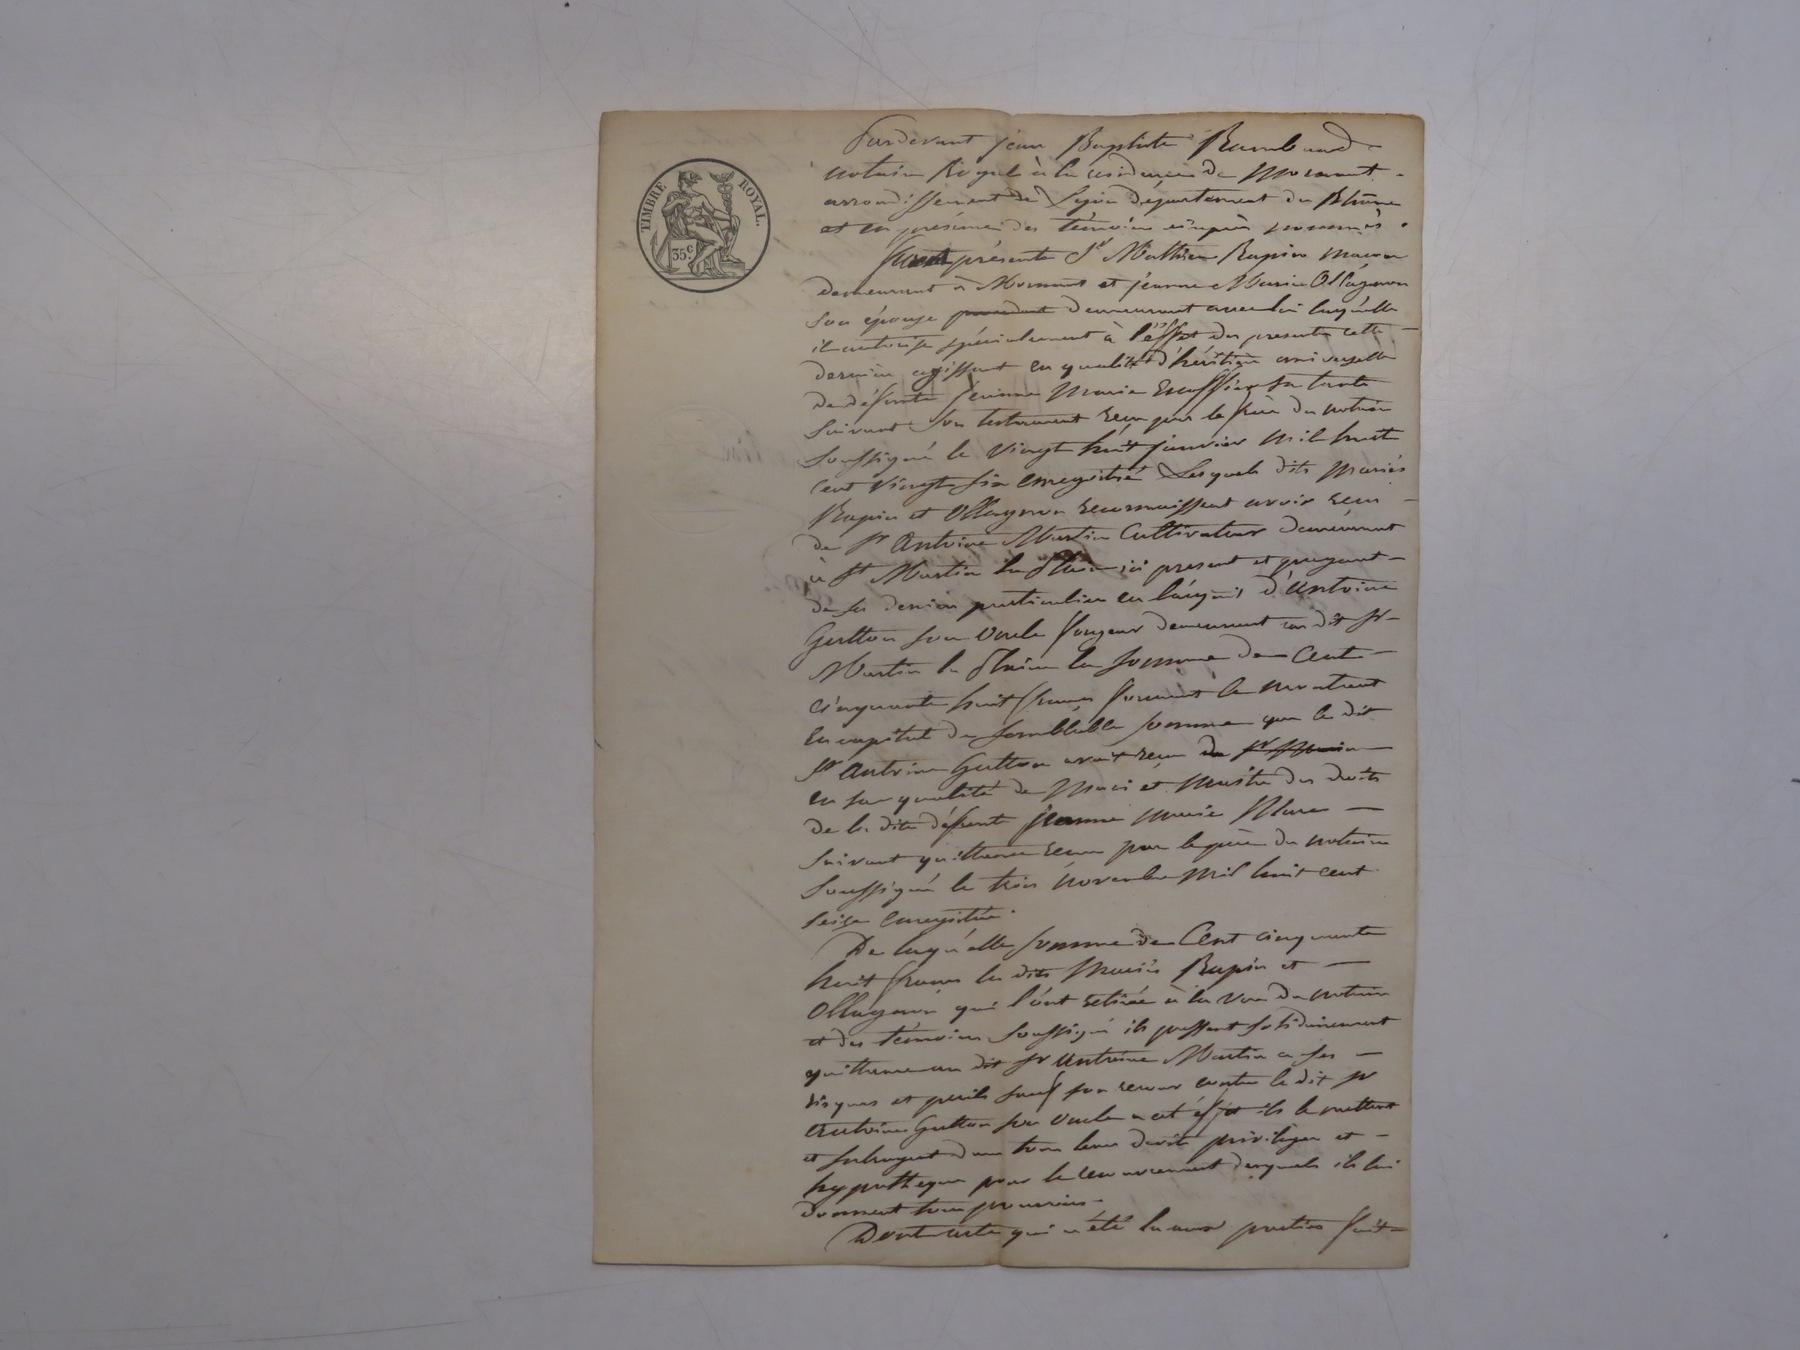 TIMBRE ROYAL.
35 c.
Pardevant jean Baptiste Rambaud
notaire Royal à la résidence de Mornant
arrondissement de Lyon département du Rhône
et en présence des témoins ci après nommés.
présents Sr Mathieu Rapin maçon
demeurant à Mornant et jeanne Marie Ollagnon
son épouse demeurant avec lui laquelle
il autorise spécialement à l'effet des presentes cette
dernière agissant en qualité d'héritière universelle
de défunte jeanne Marie sa tante
suivant son testament reçu par le père du notaire
soussigné le vingt huit janvier mil huit
cent vingt six enregistré Lesquels dits mariés
Rapin et Ollagnon reconnaissent avoir reçu
de Sr Antoine Martin Cultivateur demeurant
à St Martin la plaine ici present et payant
de ses deniers particuliers en l'acquit d'Antoine
Gutton son oncle demeurant au dit St
Martin la plaine la somme de Cent
cinquante huit francs formant le montant
en capital de semblable somme que le dit
Sr Antoine Gutton avait reçu du Sr
en sa qualité de Mari et Maître des droits
de la dite défunte jeanne marie
suivant quittance reçue par le père du notaire
soussigné le trois novembre mil huit cent
seize enregistrée.
De laquelle somme de Cent cinquante
huit francs les dits Mariés Rapin et
Ollagnon qui l'ont retirée à la vue du notaire
et des témoins soussigné ils passent solidairement
quittance au dit Sr Antoine Martin a ses
risques et perils sauf son recour contre le dit Sr
Antoine Gutton son oncle a cet éffet ils le mettent
et subrogent dans tous leurs droits privilèges et
hypothèques pour le recouvrement desquels ils lui
donnent tous pouvoirs.
Dont acte qui a été lu aux parties fait